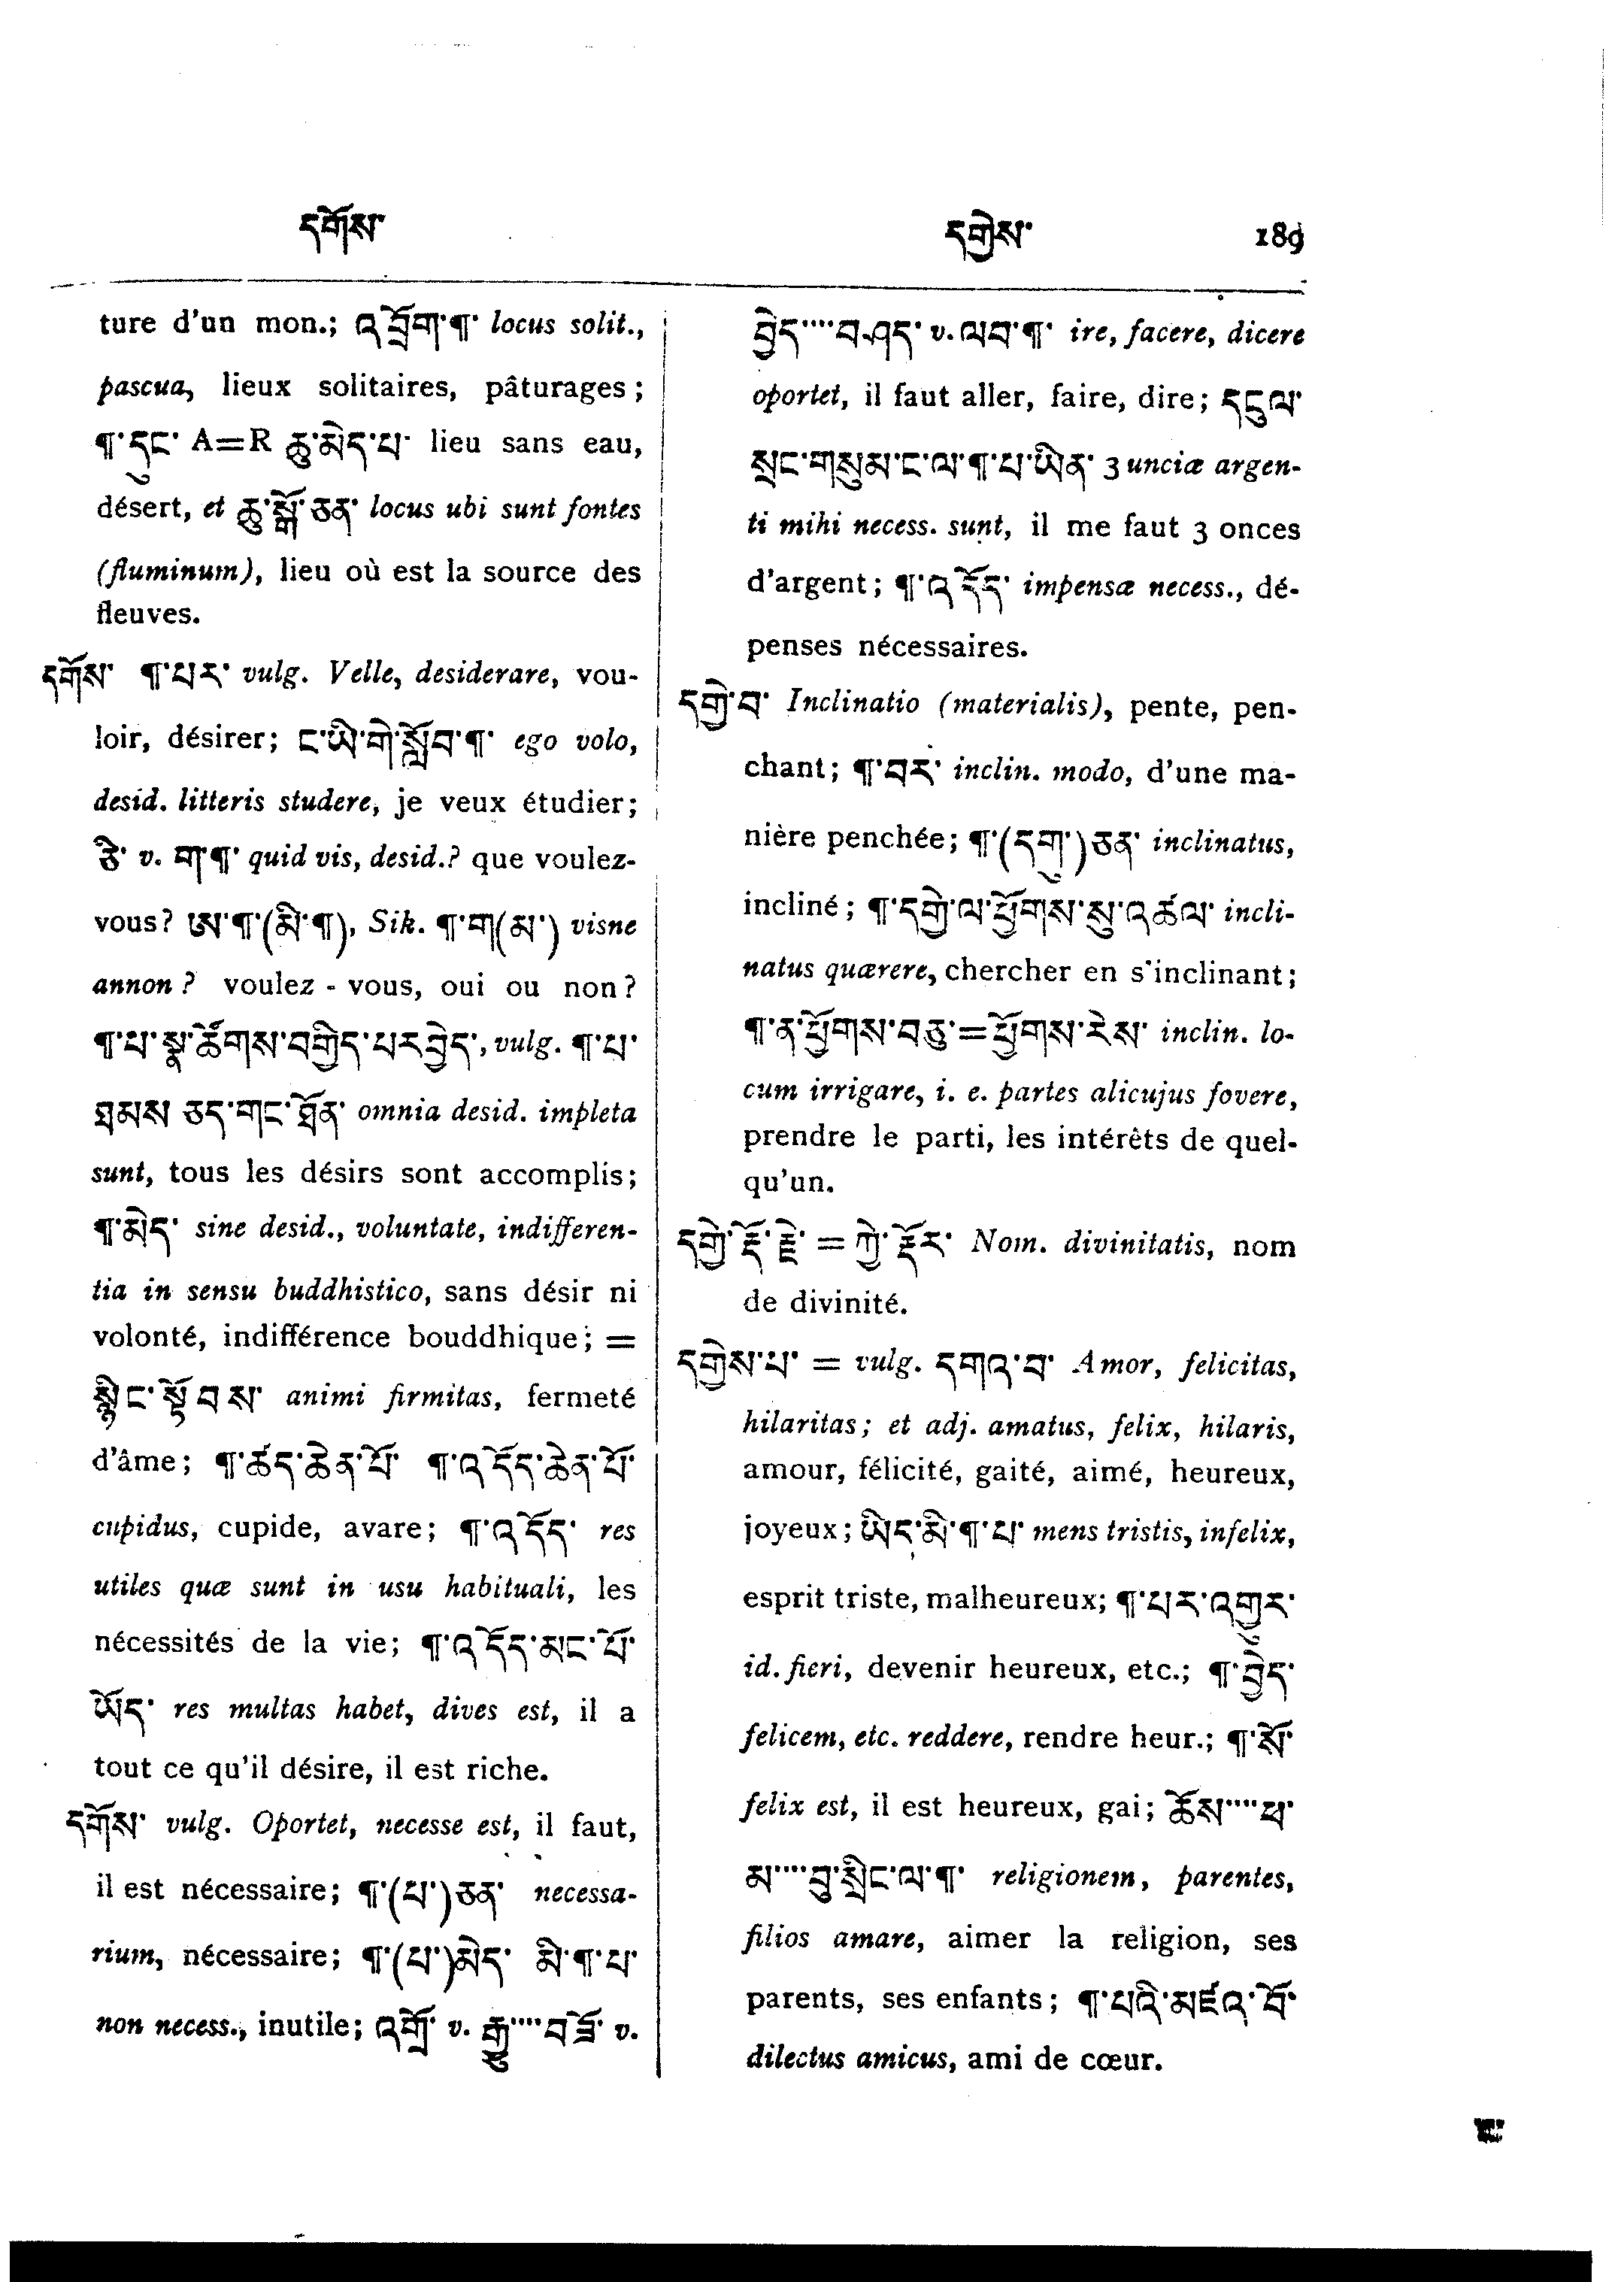 དགོས་
དགྱེས་ 189
ture d'un mon.; འབྲོག་¶་ locus solit.,
pascua, lieux solitaires, pâturages;
¶་དུང་ A=R ཆུ་མེད་པ་ lieu sans eau,
désert, et ཆུ་སྒོ་ཅན་ locus ubi sunt fontes
(fluminum), lieu où est la source des
fleuves.
དགོས་ ¶་པར་ vulg. Velle, desiderare, vou-
loir, désirer; ང་ཡི་གེ་སློབ་¶་ ego volo,
desid. litteris studere, je veux étudier;
ཅི་ v. ག་¶་ quid vis, desid.? que voulez-
vous? ཨ་¶་(མི་¶), Sik. ¶་ག(མ་) visne
annon? voulez-vous, oui ou non?
¶་པ་སྣ་ཚོགས་བགྱིད་པར་བྱེད་, vulg. ¶་པ་
ཐམས་ཅད་གང་ཐོན་ omnia desid. impleta
sunt, tous les désirs sont accomplis;
¶་མེད་ sine desid., voluntate, indifferen-
tia in sensu buddhistico, sans désir ni
volonté, indifférence bouddhique; =
སྙིང་སྟོབས་ animi firmitas, fermeté
d'âme; ¶་ཚད་ཆེན་པོ་ ¶་འདོད་ཆེན་པོ་
cupidus, cupide, avare; ¶་འདོད་ res
utiles quæ sunt in usu habituali, les
nécessités de la vie; ¶་འདོད་མང་པོ་
ཡོད་ res multas habet, dives est, il a
tout ce qu'il désire, il est riche.
དགོས་ vulg. Oportet, necesse est, il faut,
il est nécessaire; ¶་(པ་)ཅན་ necessa-
rium, nécessaire; ¶་(པ་)མེད་ མི་¶་པ་
non necess., inutile; འགྲོ་ v. རྒྱུ་····བཟོ་ v.
བྱེད་····བ་ཤད་ v. ལབ་¶་ ire, facere, dicere
oportet, il faut aller, faire, dire; དངུལ་
སྲང་གསུམ་ང་ལ་¶་པ་ཡིན་ 3 unciæ argen-
ti mihi necess. sunt, il me faut 3 onces
d'argent; ¶་འདོད་ impensæ necess., dé-
penses nécessaires.
དགྱེ་བ་ Inclinatio (materialis), pente, pen-
chant; ¶་བར་ inclin. modo, d'une ma-
nière penchée; ¶་(དགུ་)ཅན་ inclinatus,
incliné; ¶་དགྱེ་ལ་ཕྱོགས་སུ་འཚལ་ incli-
natus quærere, chercher en s'inclinant;
¶་ན་ཕྱོགས་བཅུ་=ཕྱོགས་རེས་ inclin. lo-
cum irrigare, i. e. partes alicujus fovere,
prendre le parti, les intérêts de quel-
qu'un.
དགྱེ་རྡོ་རྗེ་ = ཀྱེ་རྡོར་ Nom. divinitatis, nom
de divinité.
དགྱེས་པ་ = vulg. དགའ་བ་ Amor, felicitas,
hilaritas; et adj. amatus, felix, hilaris,
amour, félicité, gaité, aimé, heureux,
joyeux; ཡིད་མི་¶་པ་ mens tristis, infelix,
esprit triste, malheureux; ¶་པར་འགྱུར་
id. fieri, devenir heureux, etc.; ¶་བྱེད་
felicem, etc. reddere, rendre heur.; ¶་སོ་
felix est, il est heureux, gai; ཆོས་····ཕ་
མ་····བུ་སྲིང་ལ་¶་ religionem, parentes,
filios amare, aimer la religion, ses
parents, ses enfants; ¶་པའི་མཛའ་བོ་
dilectus amicus, ami de cœur.